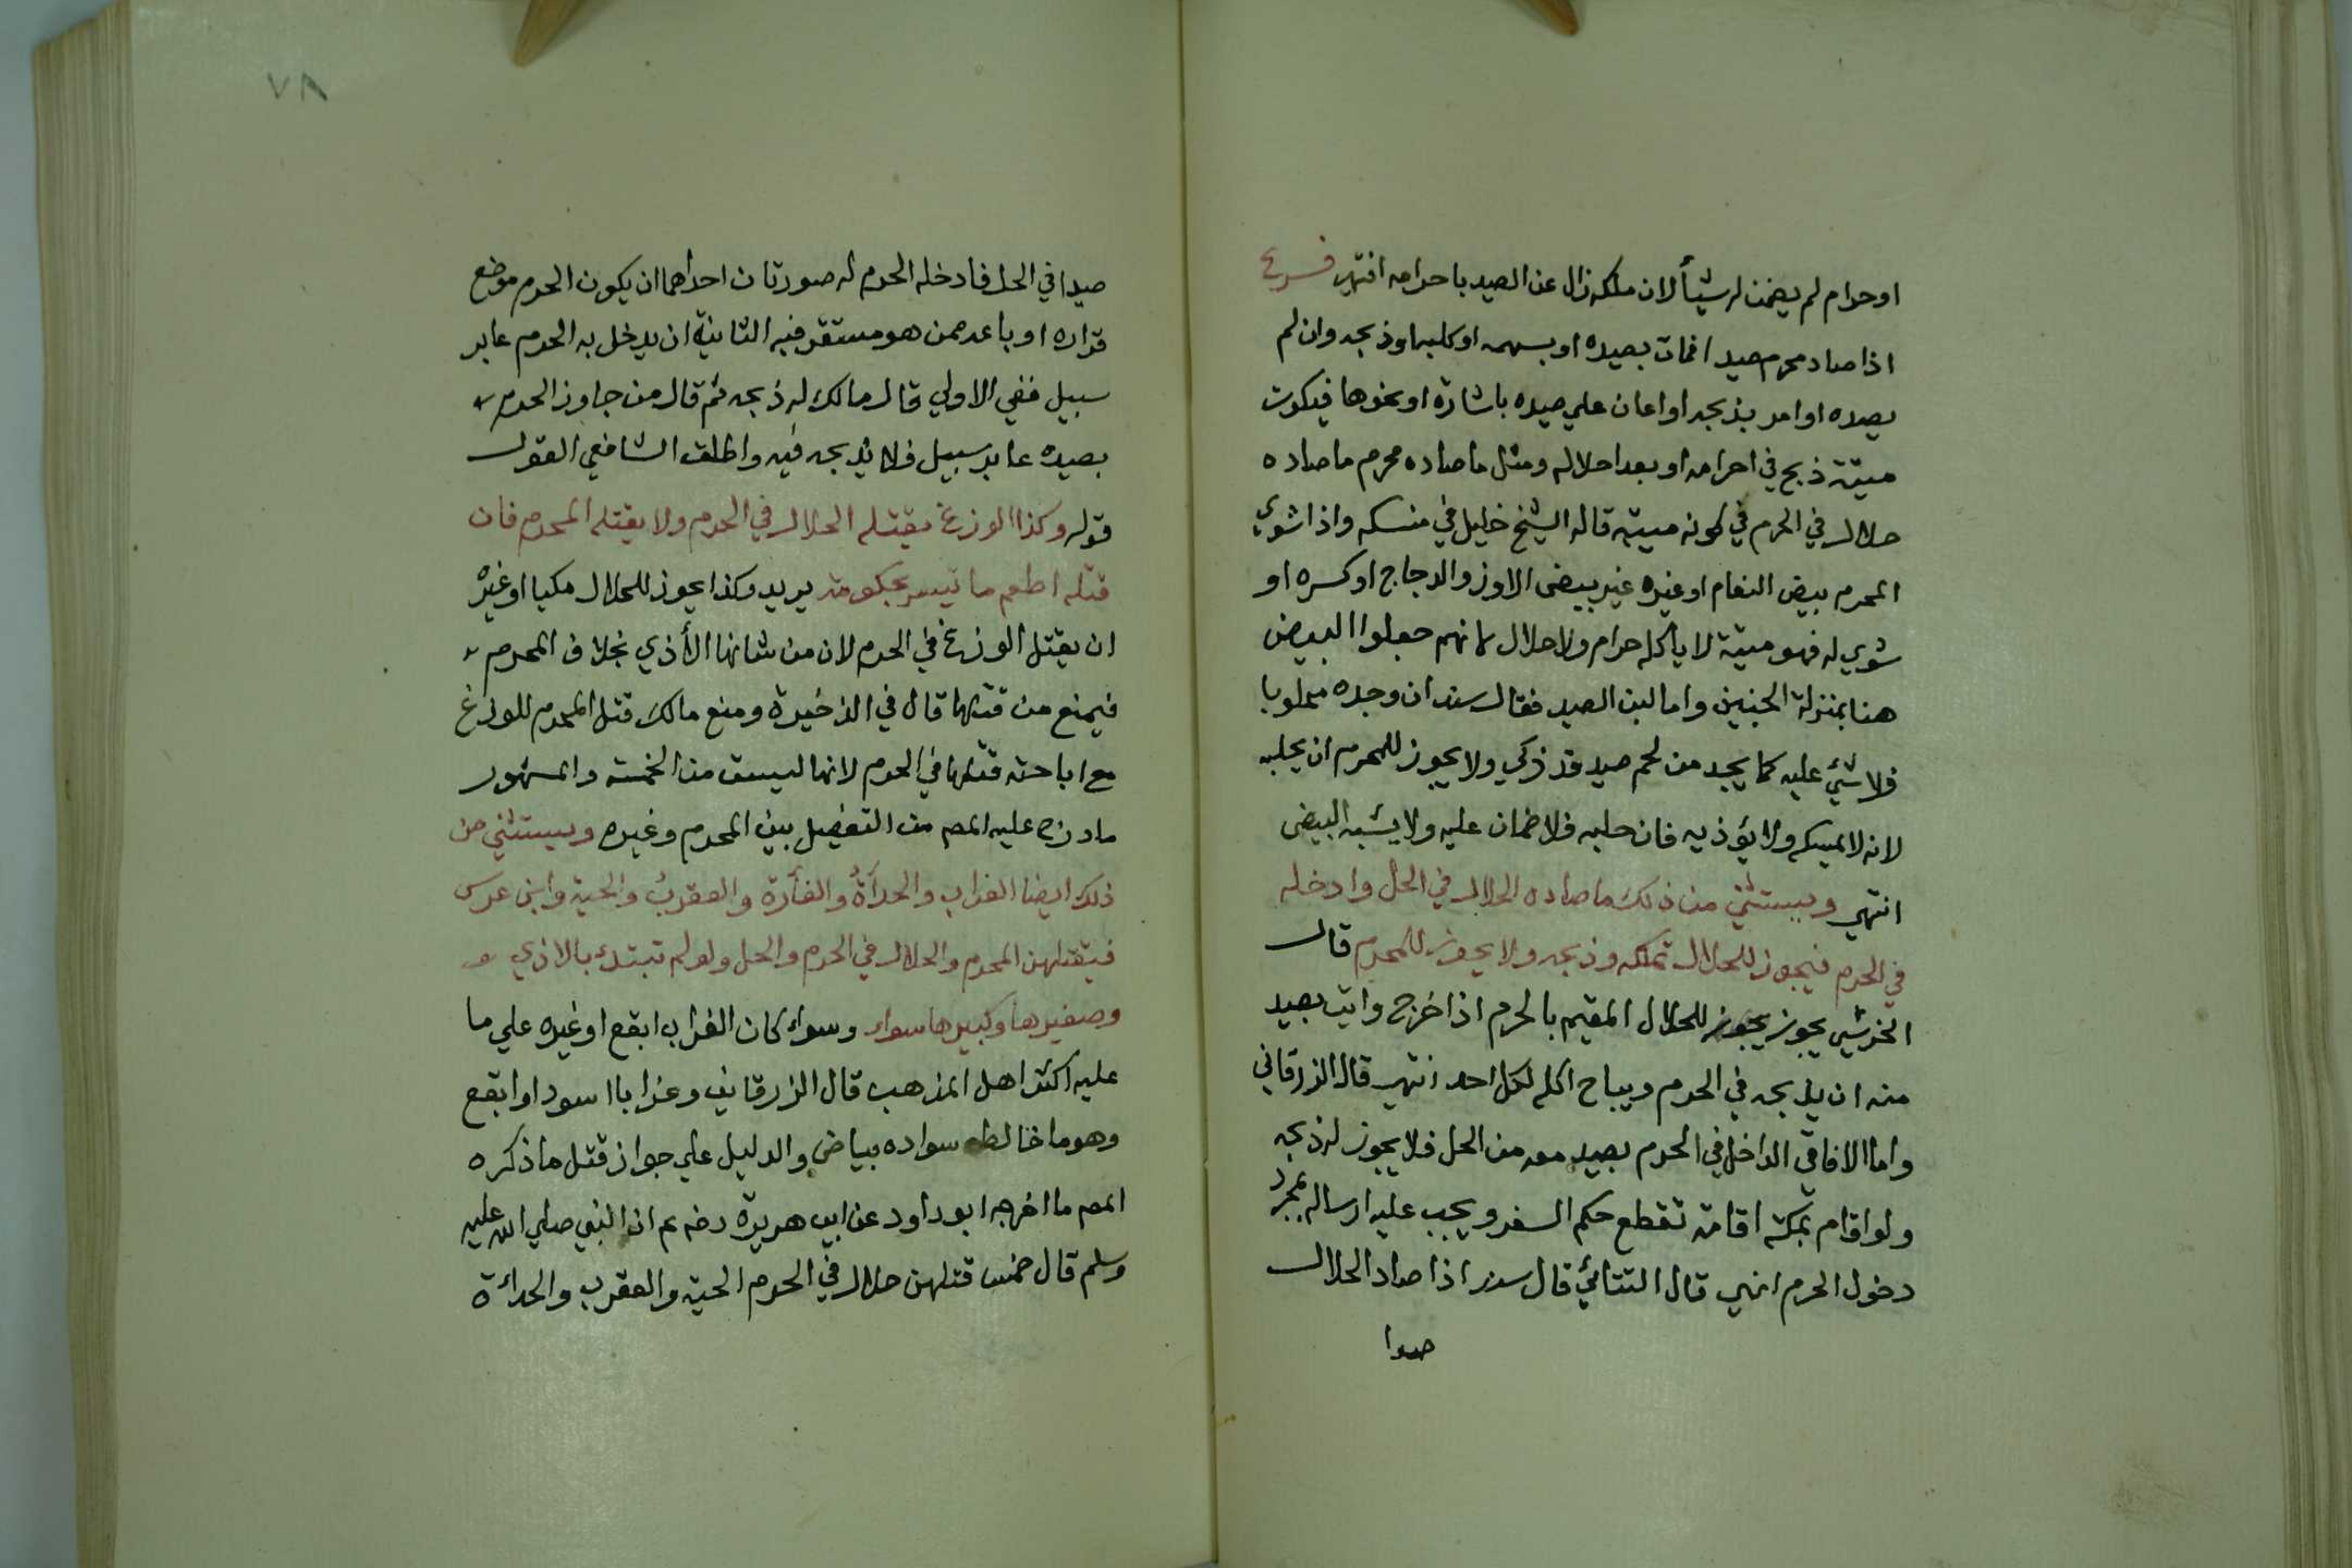 او حرام لم يضمن له شيأ لان ملكه زال عن الصيد باحرامه انتهى فرع
اذا صاد محرم صيدا فمات بصيده او بسهمه او كلبه او ذبحه وان لم
يصده او امر بذبحه او اعان علي صيده باشارة او نحوها فيكون
ميتة ذبح في احرامه او بعد احلاله ومثل ما صاده محرم ما صاده
حلال في الحرم في كونه ميتة قاله الشيخ خليل في منسكه واذا شوي
المحرم بيض النعام او غيره غير بيض الاوز والدجاج او كسره او
شوي له فهو ميتة لا ياكله حرام ولا حلال لانهم جعلوا البيض
هنا بمنزلة الجنين واما لبن الصيد فقال سند ان وجده محلوبا
فلا شيء عليه كما يجد من لحم صيد قد ذكي ولا يجوز للمحرم ان يحلبه
لانه لا يمسكه ولا يؤذيه فان حلبه فلا ضمان عليه ولا يشبه البيض
انتهي ويستثني من ذلك ما صاده الحلال في الحل وادخله
في الحرم فيجوز للحلال تملكه وذبحه ولا يجوز للمحرم قال
الخرشي يجوز يجوز للحلال المقيم بالحرم اذا خرج واتي بصيد
منه ان يذبحه في الحرم ويباح اكله لكل احد انتهي قال الزرقاني
واما الافاقي الداخل في الحرم بصيد معه من الحل فلا يجوز له ذبحه
ولو اقام بمكة اقامة تقطع حكم السفر ويجب عليه ارساله بمجرد
دخول الحرم انهي قال التتائي قال سند اذا صاد الحلال
صيدا
٧٨
صيدا في الحل فادخله الحرم له صورتان احداهما ان يكون الحرم موضع
قراره او باعه ممن هو مستقر فيه الثانية ان يدخل به الحرم عابر
سبيل ففي الاولي قال مالك له ذبحه ثم قال من جاوز الحرم
بصيده عابر سبيل فلا يذبحه فيه واطلق الشافعي القول
قوله وكذا الوزغ يقتله الحلال في الحرم ولا يقتله المحرم فان
قتله اطعم ما تيسر بحكومة يريد وكذا يجوز للحلال مكيا او غيره
ان يقتل الوزغ في الحرم لان من شانها الأذي بخلاف المحرم
فيمنع من قتلها قال في الذخيرة ومنع مالك قتل المحرم للوزغ
مع اباحته قتلها في الحرم لانها ليست من الخمسة والمشهور
ما درج عليه المص من التفصيل بين المحرم وغيره ويستثني من
ذلك ايضا الغراب والحدأة والفأرة والعقرب والحية وابن عرس
فيقتلهن المحرم والحلال في الحرم والحل ولو لم تبتدئ بالاذي
وصغيرها وكبيرها سواء وسواء كان الغراب ابقع او غيره علي ما
عليه اكثر اهل المذهب قال الزرقاني وغرابا اسود او ابقع
وهو ما خالط سواده بياض والدليل علي جواز قتل ما ذكره
المص ما اخرجه ابو داود عن ابي هريرة رضه عم ان النبي صلي الله عليه
وسلم قال خمس قتلهن حلال في الحرم الحية والعقرب والحداءة